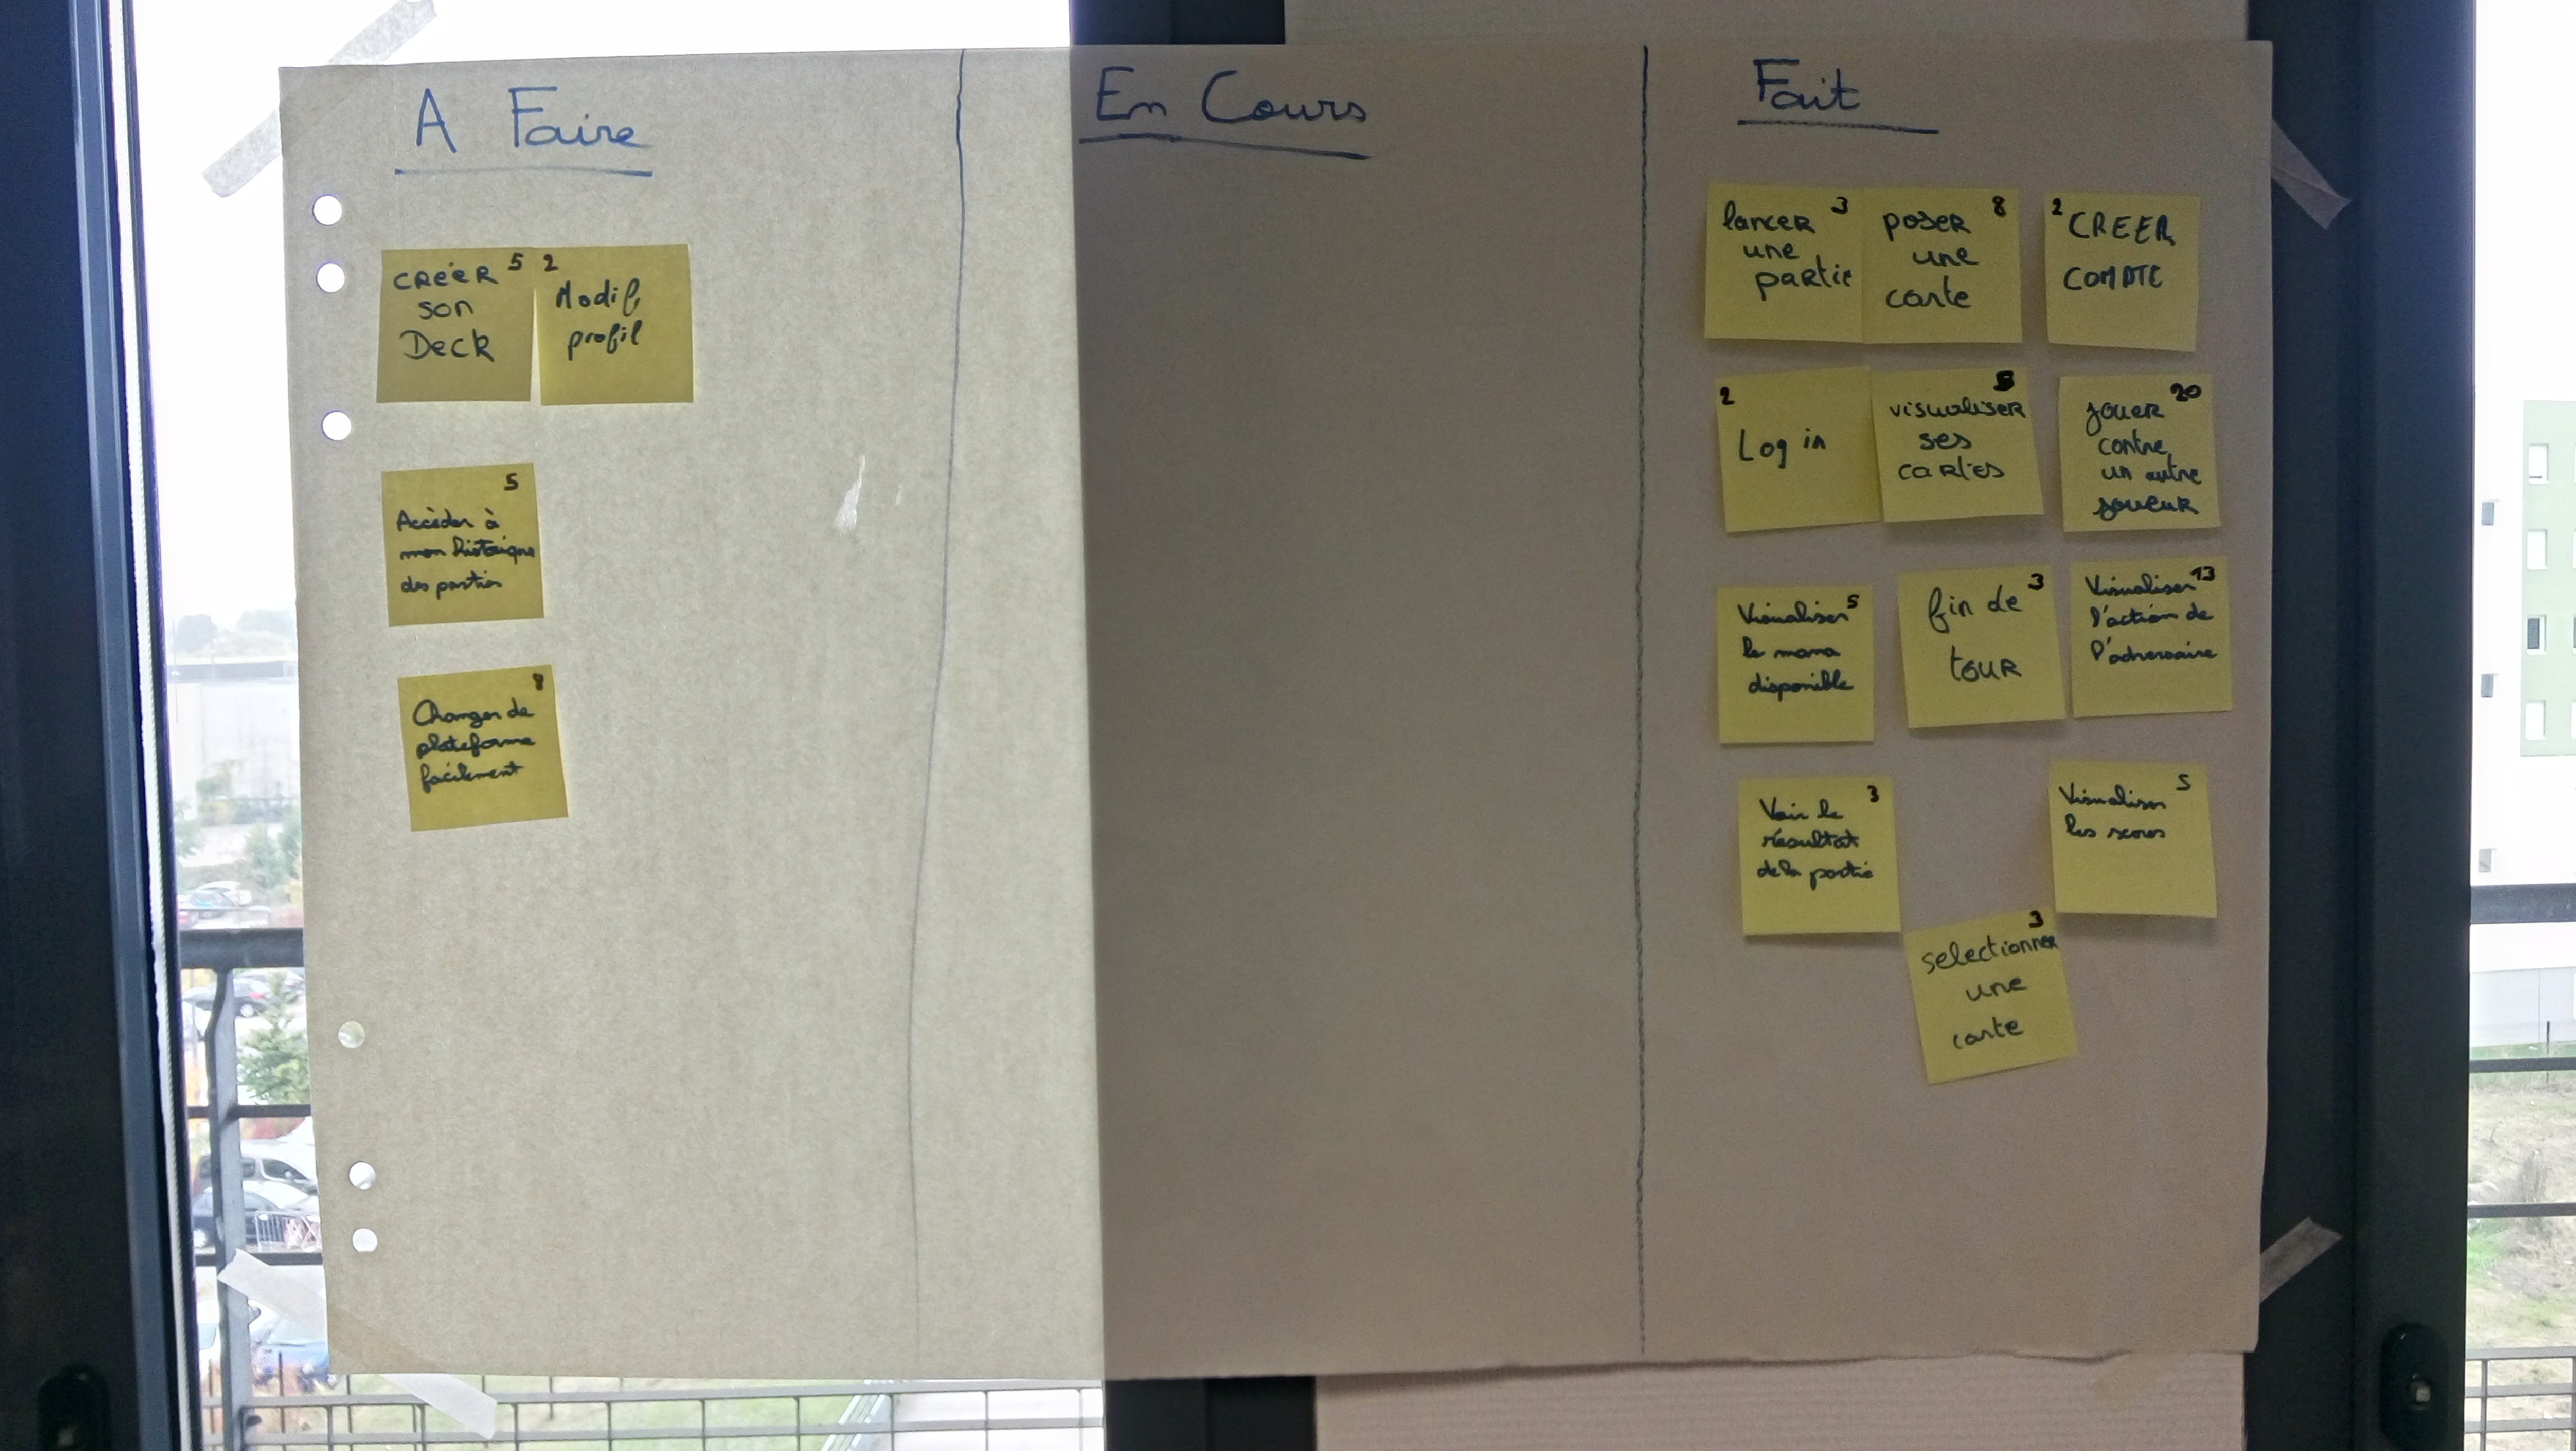 A Faire
En Cours
Fait
CRÉER 5
son
Deck
2
Modif
profil
5
Accéder à
mon historique
des parties
8
Changer de
plateforme
facilement
lancer 3
une
partie
poser 8
une
carte
2 CREER
COMPTE
2
Log in
visualiser
ses
cartes
jouer 20
contre
un autre
joueur
Visualiser 5
le mana
disponible
fin de 3
tour
Visualiser 13
l'action de
l'adversaire
3
Voir le
résultat
de la partie
5
Visualiser
les scores
3
selectionner
une
carte